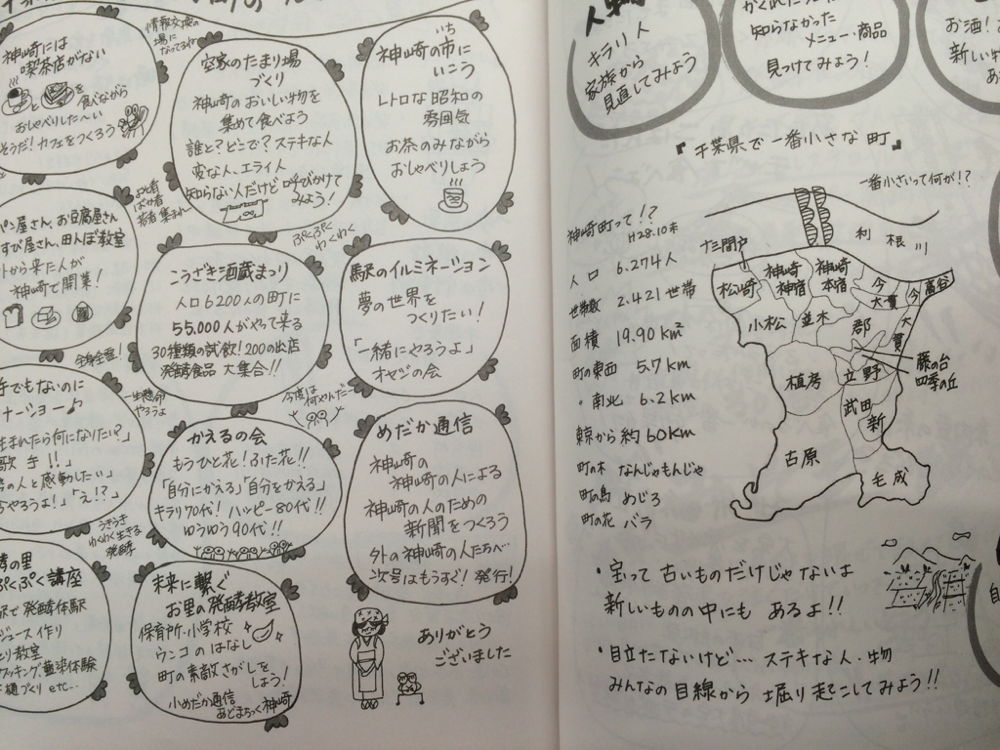 神崎には
喫茶店がない
と
を
食べながら
おしゃべりした〜い
そうだ!カフェをつくろう
情報交換の
場に
なってるわ
空家のたまり場
づくり
神崎のおいしい物を
集めて食べよう
誰と?どこで?ステキな人
変な人、エライ人
知らない人だけど呼びかけて
みよう!
神崎の市に
いち
いこう
レトロな昭和の
雰囲気
お茶のみながら
おしゃべりしよう
パン屋さん、お豆腐屋さん
すび屋さん、田んぼ教室
から来た人が
神崎で開業!
よそ者
ばか者
若者 集まれー
ぷくぷく
わくわく
こうざき酒蔵まつり
人口6200人の町に
55.000人がやって来る
30種類の試飲!200の出店
発酵食品 大集合!!
駅のイルミネーション
夢の世界を
つくりたい!
「一緒にやろうよ」
オヤジの会
全身全霊!
一生懸命
やろうよ
手でもないのに
ナーショー♪
生まれたら何になりたい?」
歌手!!」
の人と感動したい」
やろうよ!」「え!?」
かえるの会
もうひと花!ふた花!!
「自分にかえる」「自分をかえる」
キラリ70代!ハッピー80代!!
ゆうゆう90代!!
めだか通信
神崎の
神崎の人による
神崎の人のための
新聞をつくろう
外の神崎の人たちへ…
次号はもうすぐ!発行!
うきうき
わくわく生きる
発酵
の里
ぷくぷく講座
で発酵体験
ジュース作り
とり教室
クッキング、藍染体験
づくり etc...
未来に繋ぐ
お里の発酵教室
保育所・小学校
ウンコのはなし
町の素敵さがしを
しよう!
小めだか通信
あどまちっく神崎
ありがとう
ございました
キラリ人
家族から
見直してみよう
知らなかった
メニュー・商品
見つけてみよう!
お酒!
新しい
『千葉県で一番小さな町』
一番小さいって何が!?
神崎町って!?
H28.10末
人口 6.274人
世帯数 2.421世帯
面積 19.90km²
町の東西 5.7km
・南北 6.2km
東京から約60km
町の木 なんじゃもんじゃ
町の鳥 めじろ
町の花 バラ
利根川
十三間戸
松崎
神崎
神宿
神崎
本宿
今
大貫
今
高谷
小松
並木
郡
大
貫
植房
立野
藤の台
四季の丘
武田
新
古原
毛成
・宝って古いものだけじゃないよ
新しいものの中にもあるよ!!
・目立たないけど…ステキな人・物
みんなの目線から掘り起こしてみよう!!